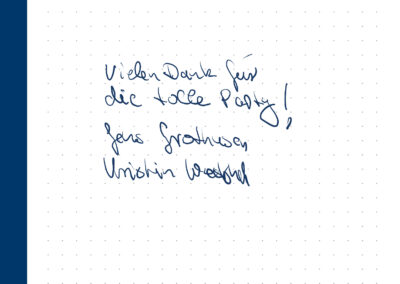 Vielen Dank für
die tolle Party!
Jens Grothues
Kristin Westphal